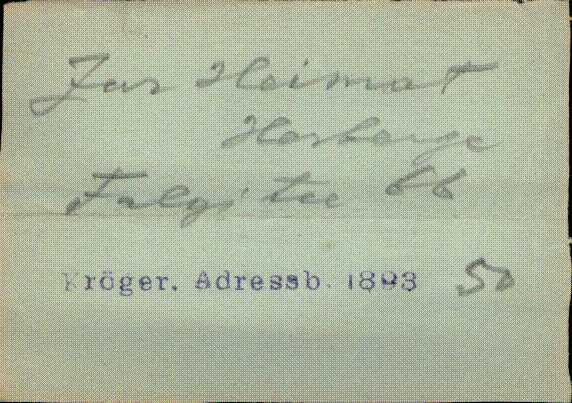 Zur Heimat
Herberge
66
Kröger. Adressb. 1893 50